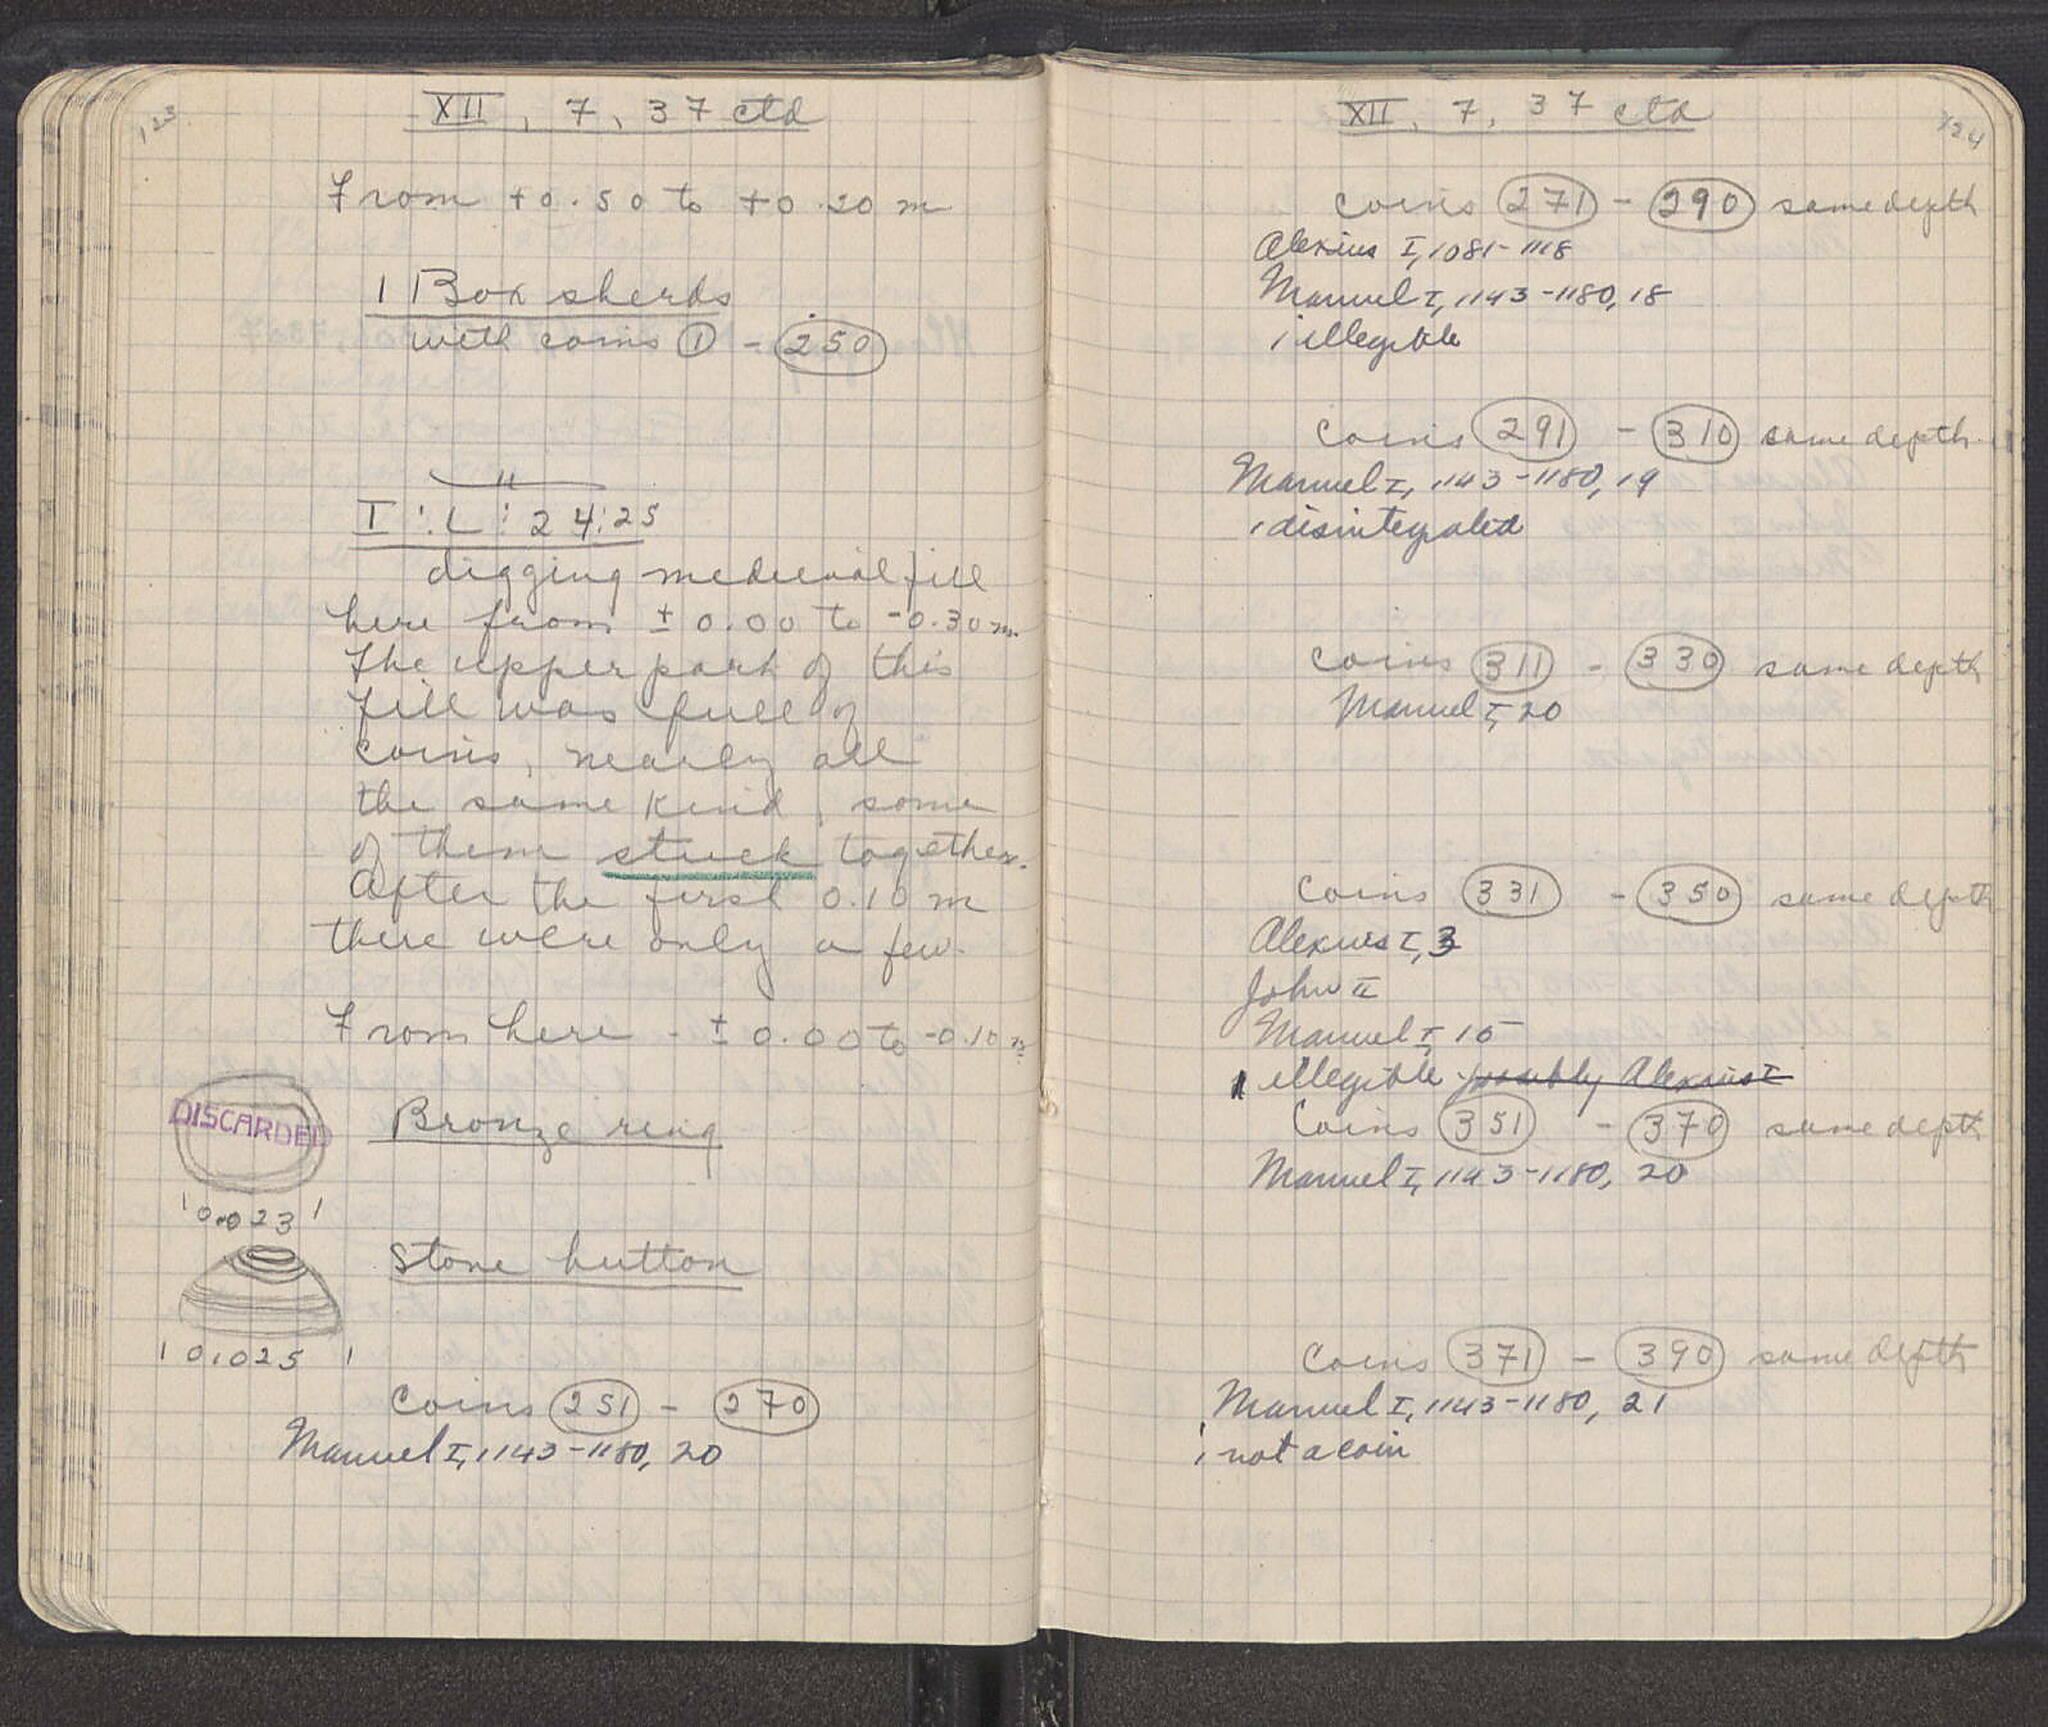 123
XII, 7, 37 ctd
From +0.50 to +0.20 m
1 Box sherds
with coins 1 - 250
"
I : L : 24:25
digging medieval fill
here from ± 0.00 to -0.30 m.
The upper part of this
fill was full of
coins, nearly all
the same kind, some
of them stuck together.
After the first 0.10 m
there were only a few.
From here - ± 0.00 to -0.10 m
DISCARDED
Bronze ring
0.023
Stone button
0.025
Coins 251 - 270
Manuel I, 1143-1180, 20
124
XII, 7, 37 ctd
Coins 271 - 290 same depth
Alexius I, 1081-1118
Manuel I, 1143-1180, 18
1 illegible
Coins 291 - 310 same depth.
Manuel I, 1143-1180, 19
1 disintegrated
Coins 311 - 330 same depth
Manuel I, 20
Coins 331 - 350 same depth
Alexius I, 3
John II
Manuel I, 15
1 illegible possibly Alexius I
Coins 351 - 370 same depth
Manuel I, 1143-1180, 20
Coins 371 - 390 same depth
Manuel I, 1143-1180, 21
1 not a coin